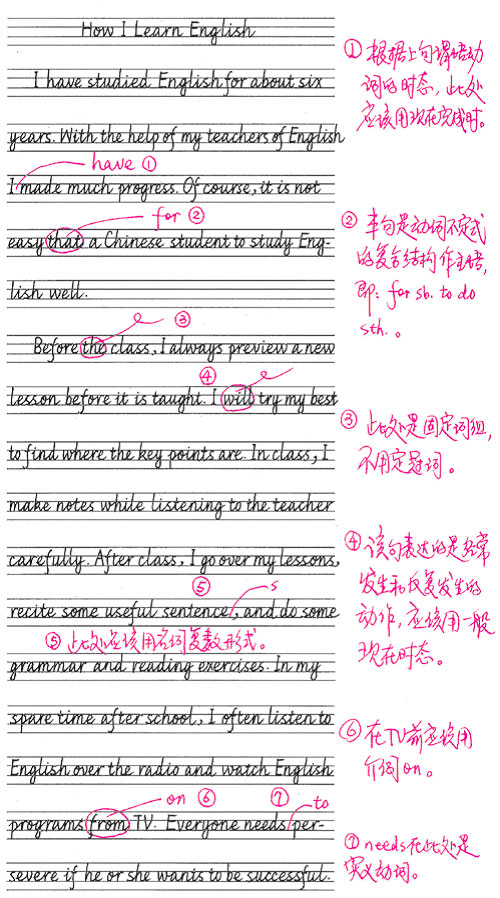 How I Learn English
I have studied English for about six
years. With the help of my teachers of English
have ①
I made much progress. Of course, it is not
for ②
easy that a Chinese student to study Eng-
lish well.
③
Before the class, I always preview a new
④
lesson before it is taught. I will try my best
to find where the key points are. In class, I
make notes while listening to the teacher
carefully. After class, I go over my lessons,
⑤ s
recite some useful sentence, and do some
⑤ 此处应该用名词复数形式。
grammar and reading exercises. In my
spare time after school, I often listen to
English over the radio and watch English
on ⑥ ⑦ to
programs from TV. Everyone needs per-
severe if he or she wants to be successful.
① 根据上句谓语动
词的时态，此处
应该用现在完成时。
② 本句是动词不定式
的复合结构作主语，
即：for sb. to do
sth.。
③ 此处是固定词组，
不用定冠词。
④ 该句表达的是经常
发生和反复发生的
动作，应该用一般
现在时态。
⑥ 在TV前应该用
介词on。
⑦ needs在此处是
实义动词。